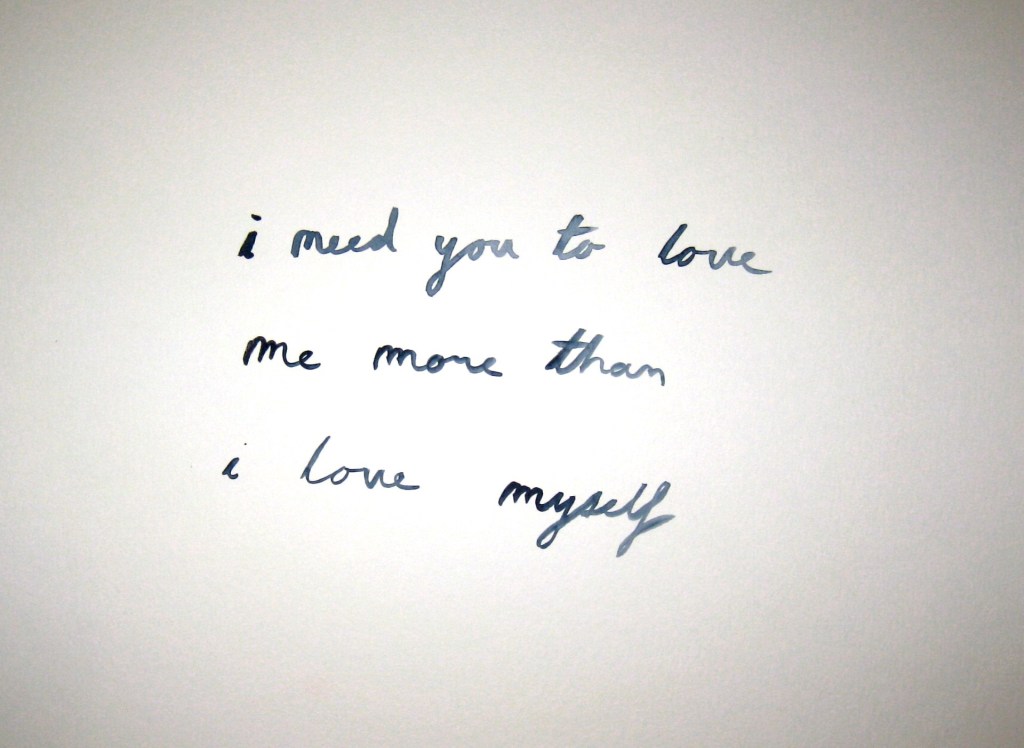 i need you to love
me more than
i love myself